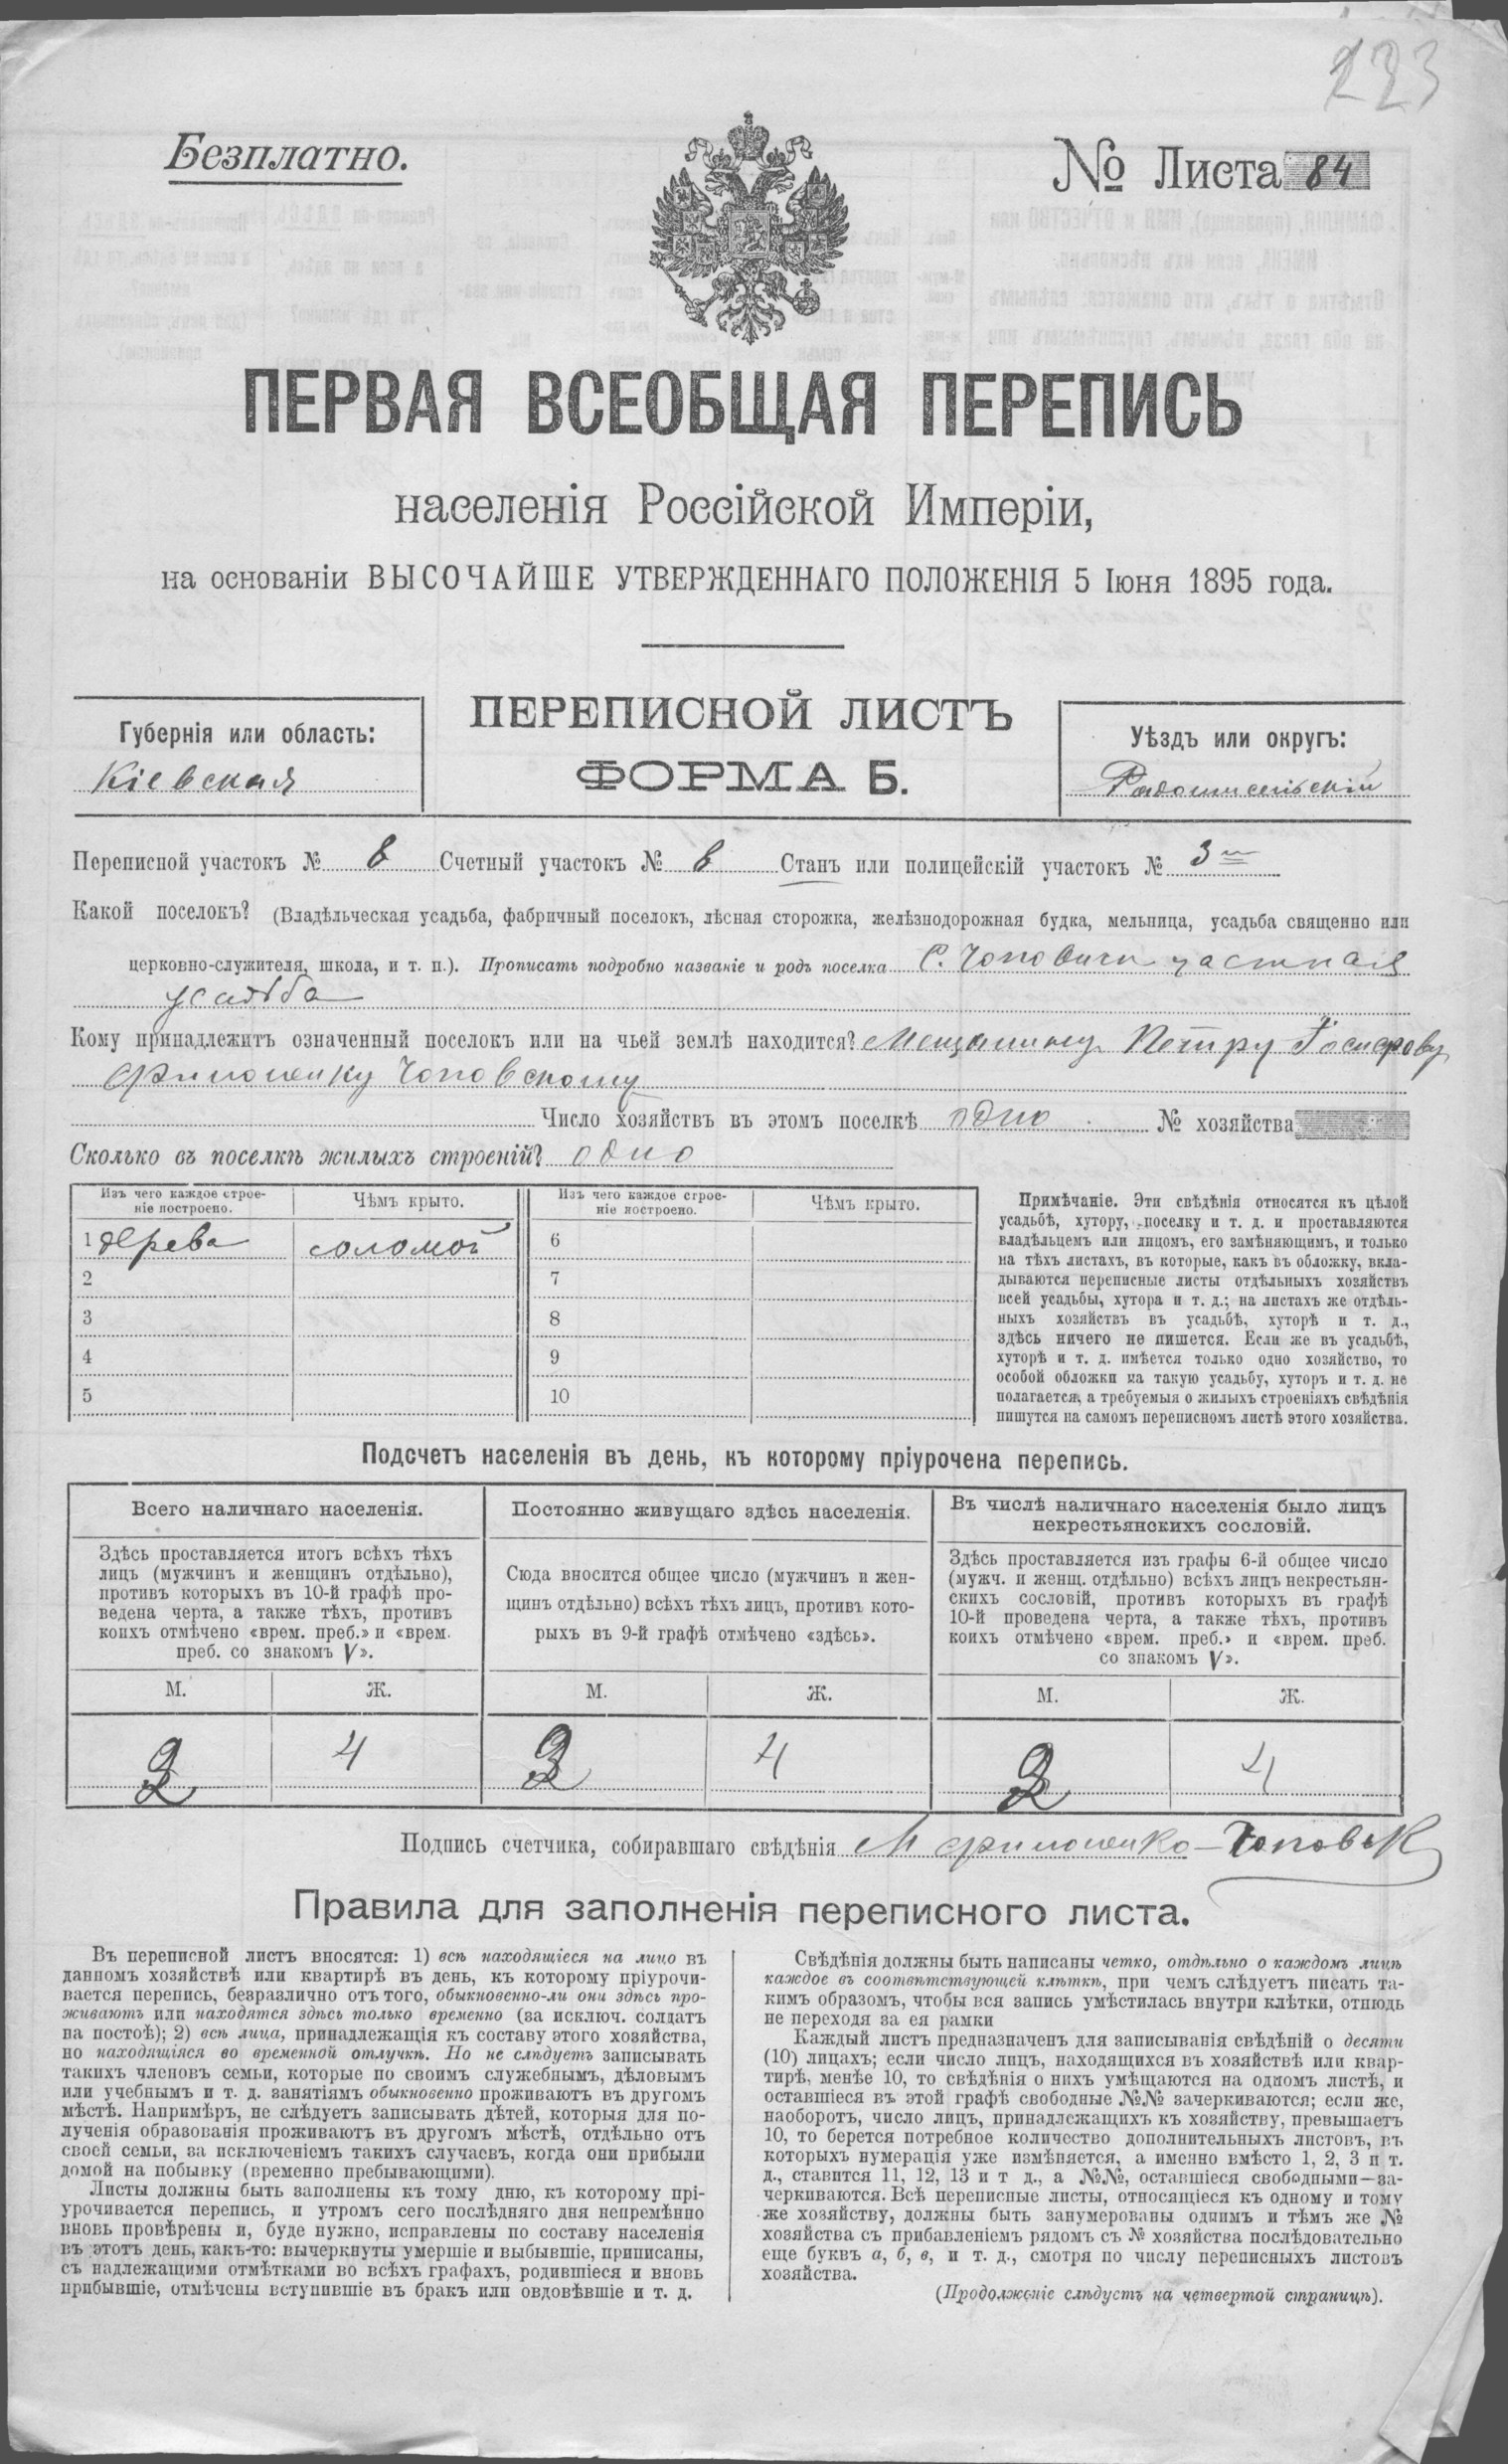 223
Безплатно.
№ Листа 84
ПЕРВАЯ ВСЕОБЩАЯ ПЕРЕПИСЬ
населенія Россійской Имперіи,
на основаніи ВЫСОЧАЙШЕ УТВЕРЖДЕННАГО ПОЛОЖЕНІЯ 5 Іюня 1895 года.
ПЕРЕПИСНОЙ ЛИСТЪ
ФОРМА Б.
Губернія или область:
Кіевская
Уѣздъ или округъ:
Радомысльскій
Переписной участокъ № 6 Счетный участокъ № 6 Станъ или полицейскій участокъ № 3й
Какой поселокъ? (Владѣльческая усадьба, фабричный поселокъ, лѣсная сторожка, желѣзнодорожная будка, мельница, усадьба священно или
церковно-служителя, школа, и т. п.). Прописать подробно названіе и родъ поселка С. Чоповичи частная
усадьба
Кому принадлежитъ означенный поселокъ или на чьей землѣ находится? Мещанину Петру
Чоповскому
Число хозяйствъ въ этомъ поселкѣ одно № хозяйства
Сколько въ поселкѣ жилыхъ строеній? одно
Изъ чего каждое строе-
ніе построено.
Чѣмъ крыто.
Изъ чего каждое строе-
ніе построено.
Чѣмъ крыто.
1 дерева соломой 6
2 7
3 8
4 9
5 10
Примѣчаніе. Эти свѣдѣнія относятся къ цѣлой
усадьбѣ, хутору, поселку и т. д. и проставляются
владѣльцемъ или лицомъ, его замѣняющимъ, и только
на тѣхъ листахъ, въ которые, какъ въ обложку, вкла-
дываются переписные листы отдѣльныхъ хозяйствъ
всей усадьбы, хутора и т. д.; на листахъ же отдѣль-
ныхъ хозяйствъ въ усадьбѣ, хуторѣ и т. д.,
здѣсь ничего не пишется. Если же въ усадьбѣ,
хуторѣ и т. д. имѣется только одно хозяйство, то
особой обложки на такую усадьбу, хуторъ и т. д. не
полагается, а требуемыя о жилыхъ строеніяхъ свѣдѣнія
пишутся на самомъ переписномъ листѣ этого хозяйства.
Подсчетъ населенія въ день, къ которому пріурочена перепись.
Всего наличнаго населенія.
Здѣсь проставляется итогъ всѣхъ тѣхъ
лицъ (мужчинъ и женщинъ отдѣльно),
противъ которыхъ въ 10-й графѣ про-
ведена черта, а также тѣхъ, противъ
коихъ отмѣчено «врем. преб.» и «врем.
преб. со знакомъ V».
М. Ж.
2 4
Постоянно живущаго здѣсь населенія.
Сюда вносится общее число (мужчинъ и жен-
щинъ отдѣльно) всѣхъ тѣхъ лицъ, противъ кото-
рыхъ въ 9-й графѣ отмѣчено «здѣсь».
М. Ж.
2 4
Въ числѣ наличнаго населенія было лицъ
некрестьянскихъ сословій.
Здѣсь проставляется изъ графы 6-й общее число
(мужч. и женщ. отдѣльно) всѣхъ лицъ некрестьян-
скихъ сословій, противъ которыхъ въ графѣ
10-й проведена черта, а также тѣхъ, противъ
коихъ отмѣчено «врем. преб.» и «врем. преб.
со знакомъ V».
М. Ж.
2 4
Подпись счетчика, собиравшаго свѣдѣнія
Правила для заполненія переписного листа.
Въ переписной листъ вносятся: 1) всѣ находящіеся на лицо въ
данномъ хозяйствѣ или квартирѣ въ день, къ которому пріурочи-
вается перепись, безразлично отъ того, обыкновенно-ли они здѣсь про-
живаютъ или находятся здѣсь только временно (за исключ. солдатъ
на постоѣ); 2) всѣ лица, принадлежащія къ составу этого хозяйства,
но находящіяся во временной отлучкѣ. Но не слѣдуетъ записывать
такихъ членовъ семьи, которые по своимъ служебнымъ, дѣловымъ
или учебнымъ и т. д. занятіямъ обыкновенно проживаютъ въ другомъ
мѣстѣ. Напримѣръ, не слѣдуетъ записывать дѣтей, которыя для по-
лученія образованія проживаютъ въ другомъ мѣстѣ, отдѣльно отъ
своей семьи, за исключеніемъ такихъ случаевъ, когда они прибыли
домой на побывку (временно пребывающими).
Листы должны быть заполнены къ тому дню, къ которому прі-
урочивается перепись, и утромъ сего послѣдняго дня непремѣнно
вновь провѣрены и, буде нужно, исправлены по составу населенія
въ этотъ день, какъ-то: вычеркнуты умершіе и выбывшіе, приписаны,
съ надлежащими отмѣтками во всѣхъ графахъ, родившіеся и вновь
прибывшіе, отмѣчены вступившіе въ бракъ или овдовѣвшіе и т. д.
Свѣдѣнія должны быть написаны четко, отдѣльно о каждомъ лицѣ
каждое въ соотвѣтствующей клѣткѣ, при чемъ слѣдуетъ писать та-
кимъ образомъ, чтобы вся запись умѣстилась внутри клѣтки, отнюдь
не переходя за ея рамки
Каждый листъ предназначенъ для записыванія свѣдѣній о десяти
(10) лицахъ; если число лицъ, находящихся въ хозяйствѣ или квар-
тирѣ, менѣе 10, то свѣдѣнія о нихъ умѣщаются на одномъ листѣ, и
оставшіеся въ этой графѣ свободные №№ зачеркиваются; если же,
наоборотъ, число лицъ, принадлежащихъ къ хозяйству, превышаетъ
10, то берется потребное количество дополнительныхъ листовъ, въ
которыхъ нумерація уже измѣняется, а именно вмѣсто 1, 2, 3 и т.
д., ставится 11, 12, 13 и т д., а №№, оставшіеся свободными—за-
черкиваются. Всѣ переписные листы, относящіеся къ одному и тому
же хозяйству, должны быть занумерованы однимъ и тѣмъ же №
хозяйства съ прибавленіемъ рядомъ съ № хозяйства послѣдовательно
еще буквъ а, б, в, и т. д., смотря по числу переписныхъ листовъ
хозяйства.
(Продолженіе слѣдуетъ на четвертой страницѣ).